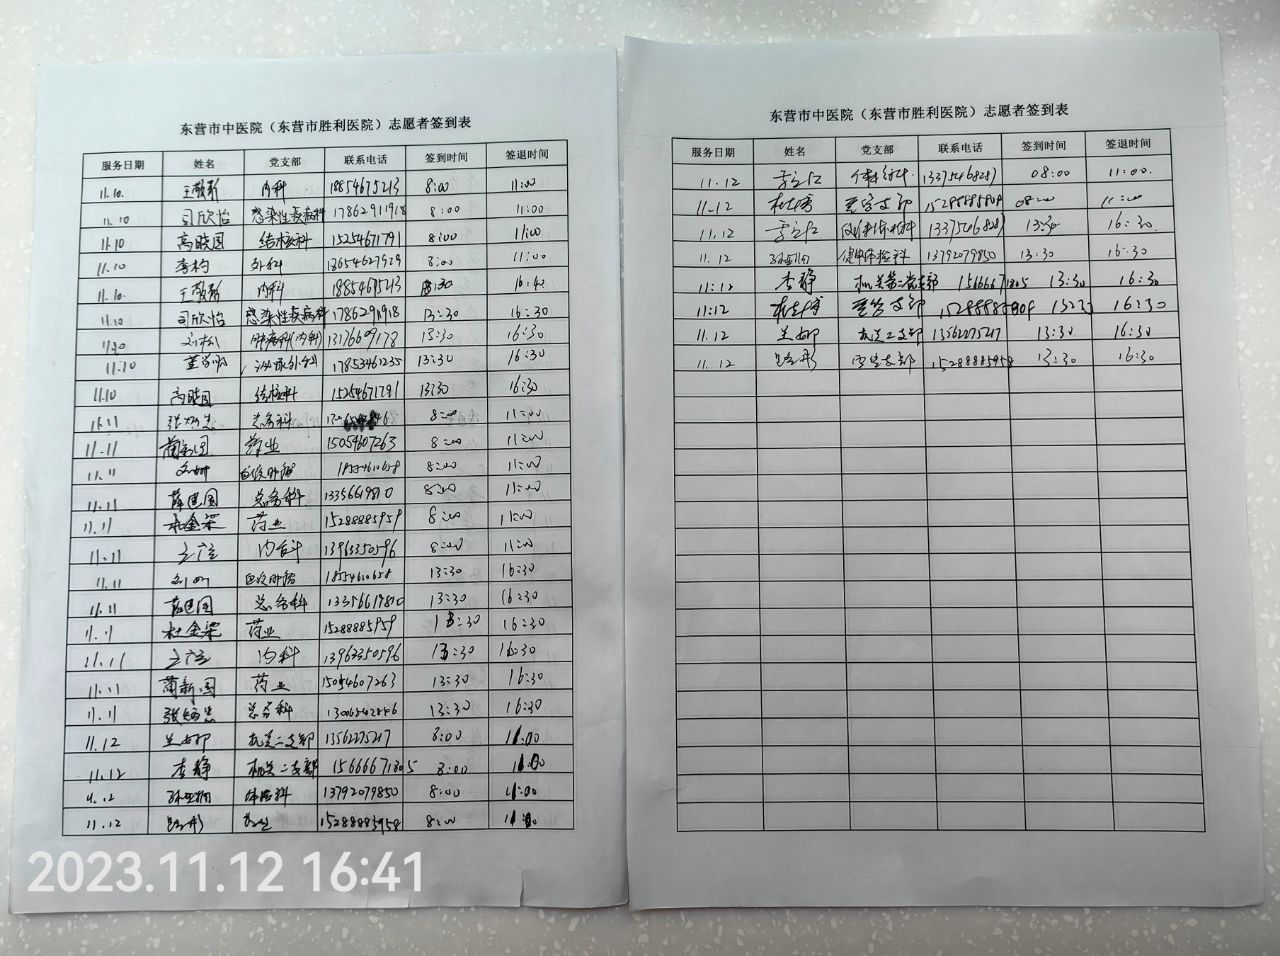 东营市中医院（东营市胜利医院）志愿者签到表
服务日期 姓名 党支部 联系电话 签到时间 签退时间
11.10. 内科 18854675213 8:00 11:00
11.10 司欣怡 感染性疾病科 17862911918 8:00 11:00
11.10 高晓国 结核科 15254671791 8:00 11:00
11.10 李构 外科 18654627929 8:00 11:00
11.10. 内科 18854675213 13:30
11.10 司欣怡 感染性疾病科 13:30 16:30
刘松 13176609178 13:30 16:30
11:10 泌尿外科 17853461235 13:30 16:30
11.10 高晓国 结核科 15254671791 13:30 16:30
11.11 总务科 8:00 11:00
11.11 蔺新国 药业 15054607263 8:00 11:00
11.11 18554610658 8:00 11:00
11.11 薛建国 总务科 13356619810 8:00 11:00
11.11 杜金梁 药业 15288885959 8:00 11:00
11.11 内科 13963350596 8:00 11:00
11.11 18554610658 13:30 16:30
11.11 薛建国 总务科 13356619810 13:30 16:30
11.11 杜金梁 药业 15288885959 13:30 16:30
11.11 内科 13963350596 13:30 16:30
11.11 蔺新国 药业 15054607263 13:30 16:30
11.11 总务科 13006542846 13:30 16:30
11.12 机关二支部 13562275217 8:00 11:00
11.12 李静 机关二支部 15666671805 8:00 11:00
11.12 体检科 13792079850 8:00 11:00
11.12 15288885958 8:00 11:00
东营市中医院（东营市胜利医院）志愿者签到表
服务日期 姓名 党支部 联系电话 签到时间 签退时间
11.12 13375468287 08:00 11:00.
11.12 支部 15288885804 08:00 11:00
11.12 13:30 16:30.
11.12 健康体检科 13792079850 13:30 16:30
11:12 李静 13:30 16:30
11:12 支部 16:30
11.12 机关二支部 13562275217 13:30 16:30
11.12 支部 15288885958 13:30 16:30
2023.11.12 16:41